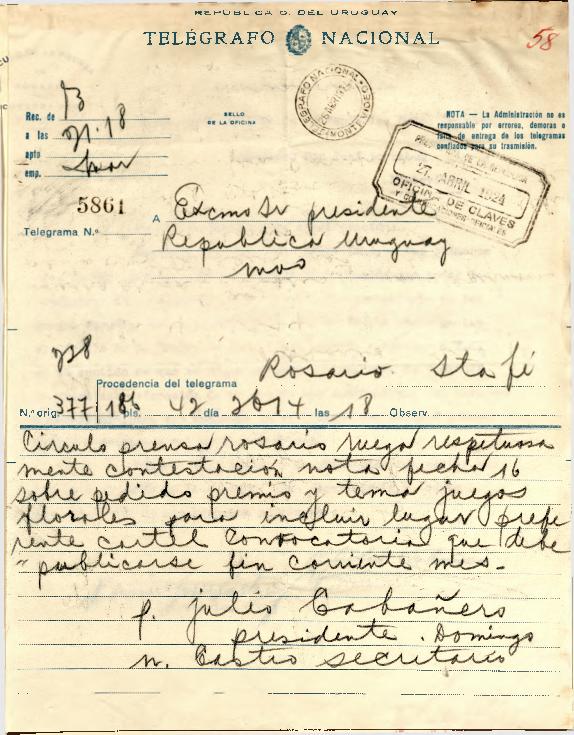 REPUBLICA O. DEL URUGUAY
TELÉGRAFO NACIONAL
58
Rec. de B
a las 21.18
apto
emp.
SELLO
DE LA OFICINA
TELEGRAFO NACIONAL MONTEVIDEO
NOTA — La Administración no es
responsable por errores, demoras o
falta de entrega de los telegramas
confiados para su trasmisión.
27 ABRIL 1924
OFICINA DE CLAVES
5861
Telegrama N.º
A Excmo Sr presidente
Republica Uruguay
mvo
Procedencia del telegrama Rosario Sta fé
N.º orig. 377/186 pls. 42 día 26 14 las 18 Observ.
Circulo prensa rosario ruega respetuosa
mente contestación nota fecha 16
sobre pedido premio y tema juegos
florales para incluir lugar prefe
rente cartel convocatoria que debe
publicarse fin corriente mes.
p. julio Cabañero
presidente. Domingo
n. Castro secretario